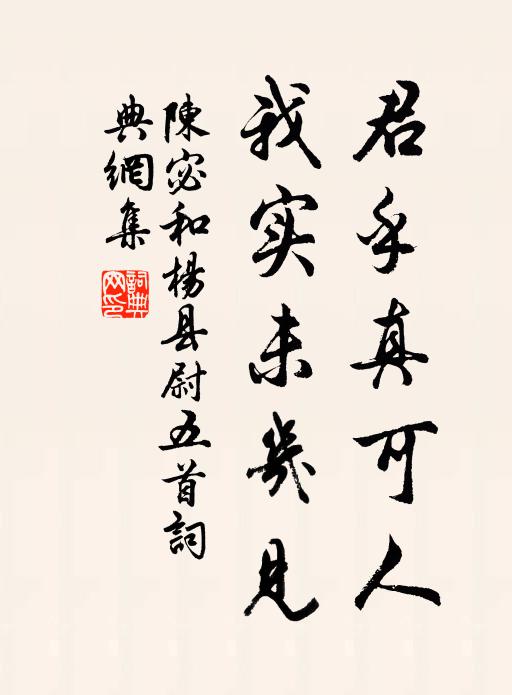 君乎真可人
我实未几见
陳宓和楊县尉五首詞
典網集
詞典
网印